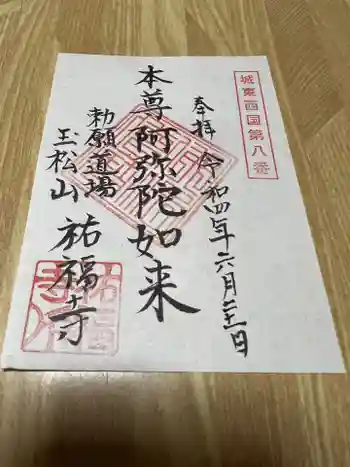 城東西国第八番
奉拝 令和四年六月二十一日
本尊 阿弥陀如来
勅願道場
玉松山 祐福寺
祐福寺印